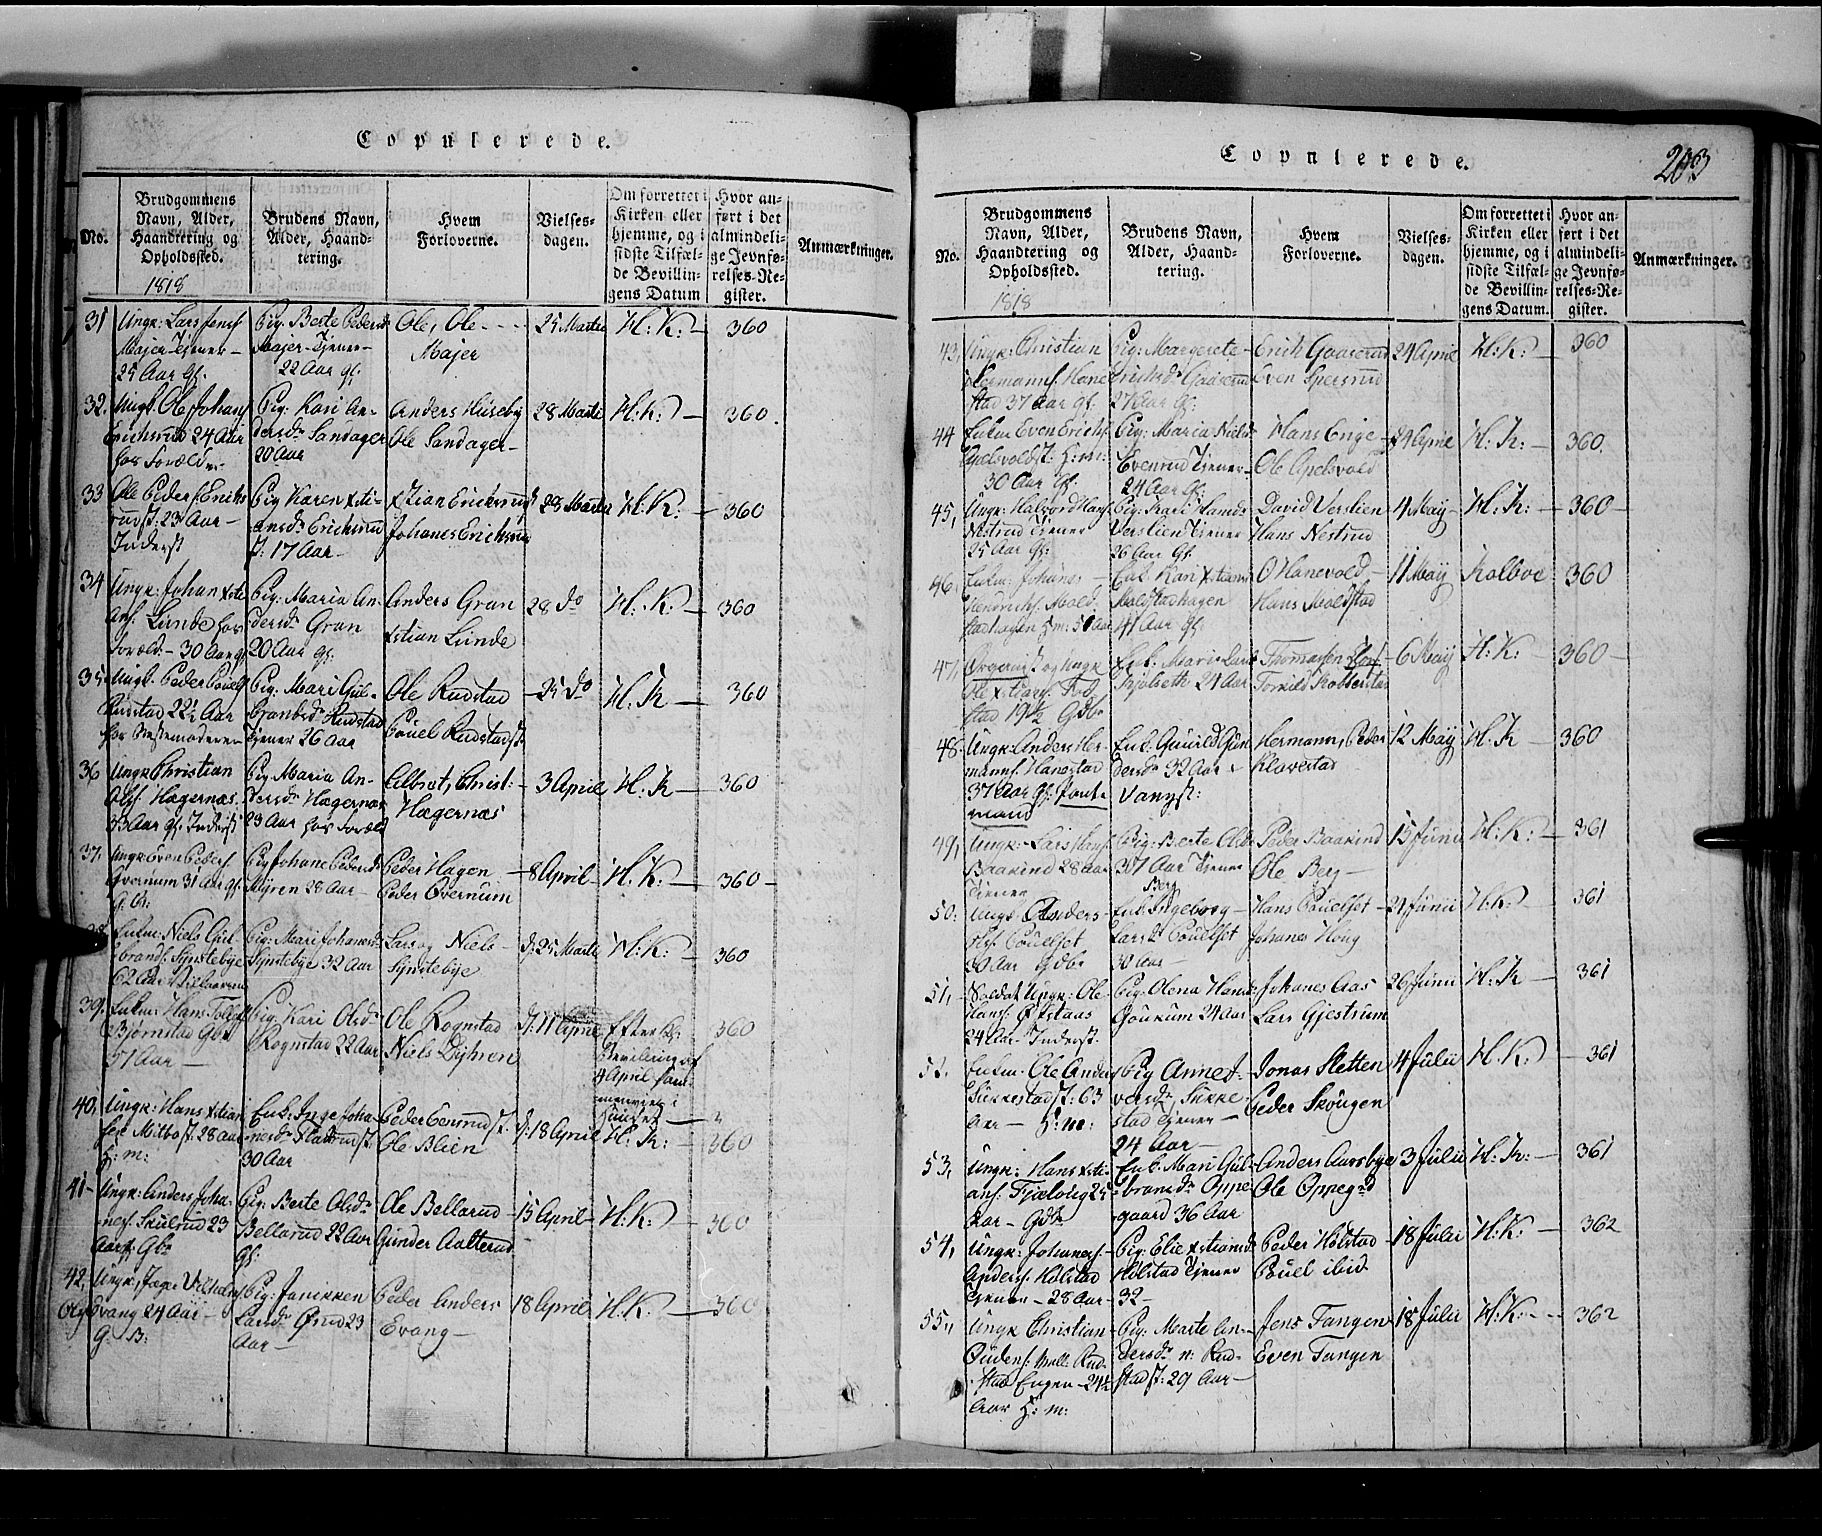 Copulerede.
No.
Brudgommens
Navn, Alder,
Haandtering og
Opholdssted.
1818
Brudens Navn,
Alder, Haand-
tering.
Hvem
Forloverne.
Vielses-
dagen.
Om forrettet i
Kirken eller
hjemme, og i
sidste Tilfæl-
de Bevillin-
gens Datum
Hvor an-
ført i det
almindeli-
ge Jevnfø-
relses-Re-
gister.
Anmærkninger.
31
Ungk: Lars Jens
Majer Tjener -
25 Aar gf.
Pig Berte Peders
Majer - Tjener -
22 Aar gf.
Ole, Ole - - -
Majer
25 Martii
H: K: -
360
32.
Ungk. Ole Johans
Erichsrud 24 Aar
hos Foræld
Pig: Kari An-
dersdr Sandager
20 Aar
Anders Huseby
Ole Sandager -
28 Martii
H: K: -
360.
33
Ole Peders Erichs
rud 23 Aar -
Inderst
Pig Karen xsti-
ansdr Erichsrud
17 Aar -
xstian Erichsrud
Johanes Erichsrud
28 Martii
H: K: -
360
34
Ungk: Johan xsti
ans. Lunde hos
Foræld. - 30 Aar gf
Pig: Maria An-
dersdr Gran
20 Aar gf:
Anders Gran
xstian Lunde
28 do
H: K: -
360
35
Ungk. Peder Pouels
Rudstad 22½ Aar
Pig: Mari Gul-
brandsdr Rudstad
Tjener 26 Aar
Ole Rudstad
Pouel Rudstad
25 do
H: K -
360
36
Ungk Christian
Ols. Hægernæs
33 Aar gf. Inderst
Pig Maria An-
dersdr Hægernæs
23 Aar hos Foræld
Albret, Christ:
Hægernæs
3 April
H: K -
360
37.
Ungk: Even Peders.
Overnum 31 Aar gf.
Pig Johane Peders
Myren 28 Aar -
Peder Hagen
Peder Overnum
8 April
H: K: -
360 -
38
Enkm: Niels Gul
brands. Synstebye
62 Aar
Pig: Mari Johanesd
Synstebye 32 Aar
Lars og Niels -
Synstebye
25 Martii
H: K: -
360
39.
Enkm: Hans
Bjørnstad Gbr
51 Aar -
Pig: Kari Olsdr
Rognstad 22 Aar
Ole Rognstad
Niels Dyhren
11 April
Efter
Bevilling af
9 April
i
Huuset -
360
40,
Ungk: Hans xstian
28 Aar
H: m:
Enk: Inge Joha-
nesdr
30 Aar
Peder
Ole Blien
18 April
H: K: -
360
41 -
Ungk: Anders Joha-
nes. Skulrud 23
Aar Gbr
Pig: Berte Olsdr
Bellerud 22 Aar
gf:
Ole Bellerud -
Gunder Aalterud
15 April -
H: K:
360
42,
Ungk,
24 Aar -
G. B:
Pig: Janikken
23
Aar -
Peder Anders
Evang -
18 April
H: K: -
360
Copulerede.
203
No.
Brudgommens
Navn, Alder,
Haandtering og
Opholdssted.
1818
Brudens Navn,
Alder, Haand-
tering.
Hvem
Forloverne.
Vielses-
dagen.
Om forrettet i
Kirken eller
hjemme, og i
sidste Tilfæl-
de Bevillin-
gens Datum.
Hvor an-
ført i det
almindeli-
ge Jevnfø-
relses-Re-
gister.
Anmærkninger.
43,
Ungk: Christian
Hermanns. Hane
stad 37 Aar gf.
Pig: Margerete -
Erichsdr Gaaserud
27 Aar gf:
Erich Gaaserud
Even Spersrud
24 April
H: K: -
360
44
Enkm Even Erichs.
Apelsvold H: m:
30 Aar gf.
Pig: Maria Nielsd
Evenrud Tjener -
24 Aar gf:
Hans Enge -
Ole Apelsvold
24 April
H: K: -
360.
45,
Ungk: Halvord Hans
Nestrud Tjener
25 Aar gf:
Pig: Kari
Verslien Tjener
26 Aar gf.
David Verslien
Hans Nestrud
4 May -
H: K: -
360 -
46.
Enkm: Johanes -
Hendrichs. Mold
stadhagen H: m: 51 Aar
Enk: Kari xstians
Moldstadhagen
41 Aar gf:
O Hanevold -
Hans Moldstad
11 May
Kolboe
360
47,
Organist og Ungk
Ole xstians.
stad 19½ Gbr
Enk: Mari Lars
Kjølseth 24 Aar
Thomassen
6 May
H: K: -
360 -
48.
Ungk: Anders Her-
manns. Hanestad
37 Aar gf.
Enk: Guuild Gun
dersdr 32 Aar -
Hermann, Peder
Klovestad
12 May
H: K -
360
49,
Ungk: - Lars Hans.
Baarind 28 Aar
Tjener
Pig: - Berte Olsd
30½ Aar Tjener
Berg
Peder Baarind
Ole Berg -
15 Junii
H: K: -
361
50:
Ungk: Anders -
Ols. Pouelset
30 Aar Gdbr
Enk: Ingeborg -
Larsdr Pouelset
30 Aar -
Hans Pouelset -
Johanes Houg
21 Junii
H: K: -
361
51, -
Soldat Ungk: Ole
Hans. Ofstaas
24 Aar Inderst.
Pig: Olena Hansd:
24 Aar
Johanes Aas
Lars Gjestrum
26 Junii
H: K -
361
52.
Enkm. Ole Anders
Sukkestad 63
Aar - H: m:
Pig Anne -
versdr Sukke-
stad Tjener -
24 Aar -
Jonas Sletten
Peder Skougen
4 Julii
H: K: -
361
53,
Ungk: Hans xsti-
ans. 25
Aar - Gdbr
Enk. Mari Gul-
brandsdr Oppe
gaard 36 Aar
Anders Aarsbye
Ole Oppegrd
3 Julii
H: K: -
361
54,
Ungk: Johanes. -
Anders. Hølstad
Tjener - 28 Aar -
Pig: Elie xstiansd
Hølstad Tjener
32 -
Peder Hølstad
Pouel ibid -
18 Julii
H: K: -
362
55.,
Ungk Christian -
Oudens. Mell: Rud-
stad Engen - 24½
Aar H: m:
Pig: Marte An-
dersdr n: Rud-
stad 29 Aar -
Jens Tangen
Even Tangen
18 Julii
H: K: - -
362